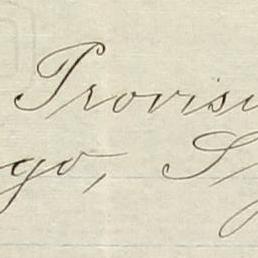 Provisi
go, Sy